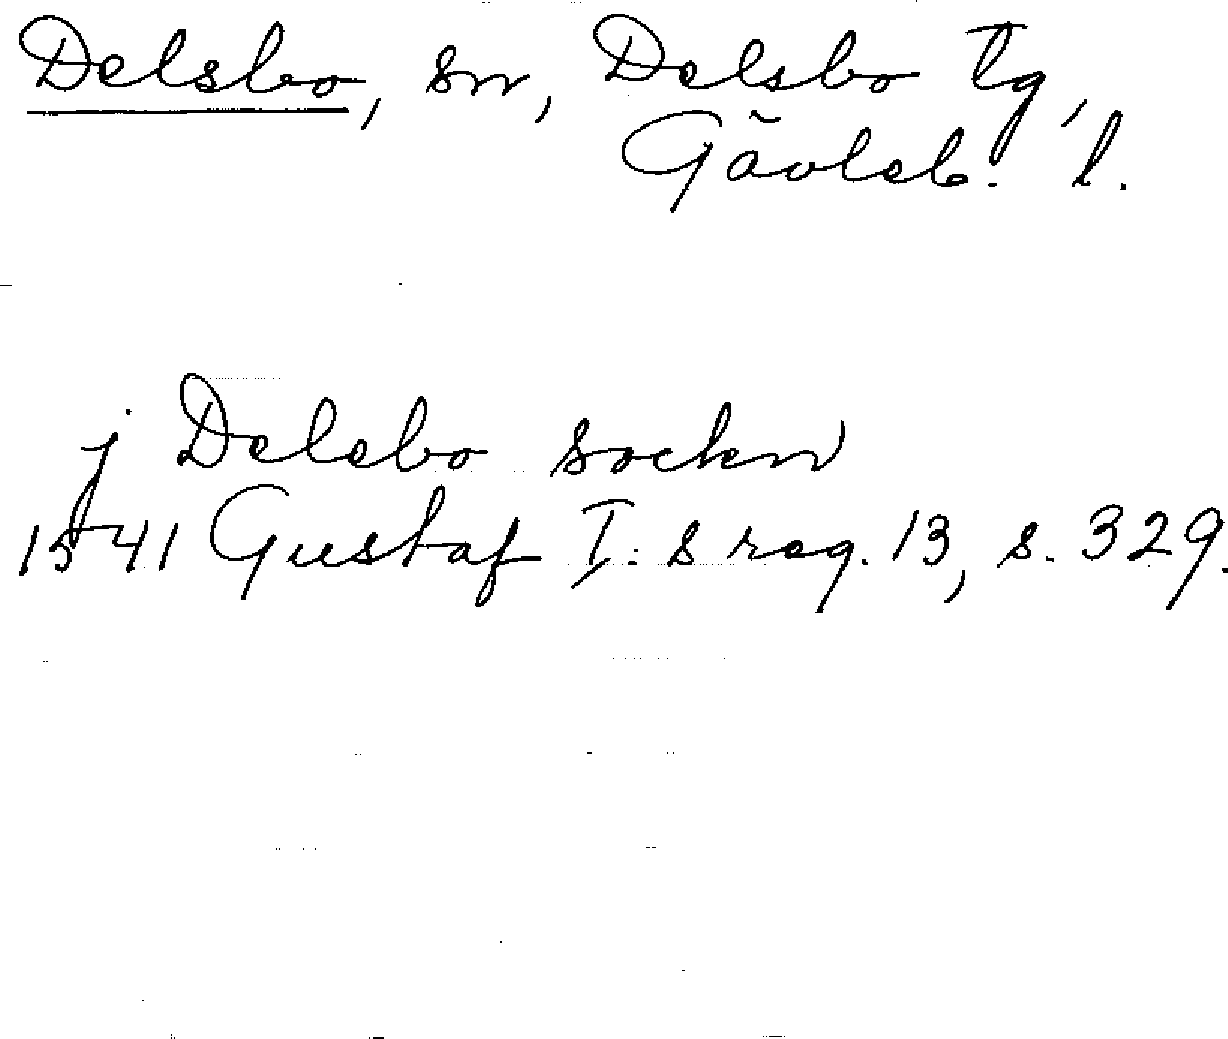 Delsbo, sn, Delsbo tg,
Gävleb. l.
j Delsbo sockn
1541 Gustaf I:s reg. 13, s. 329.